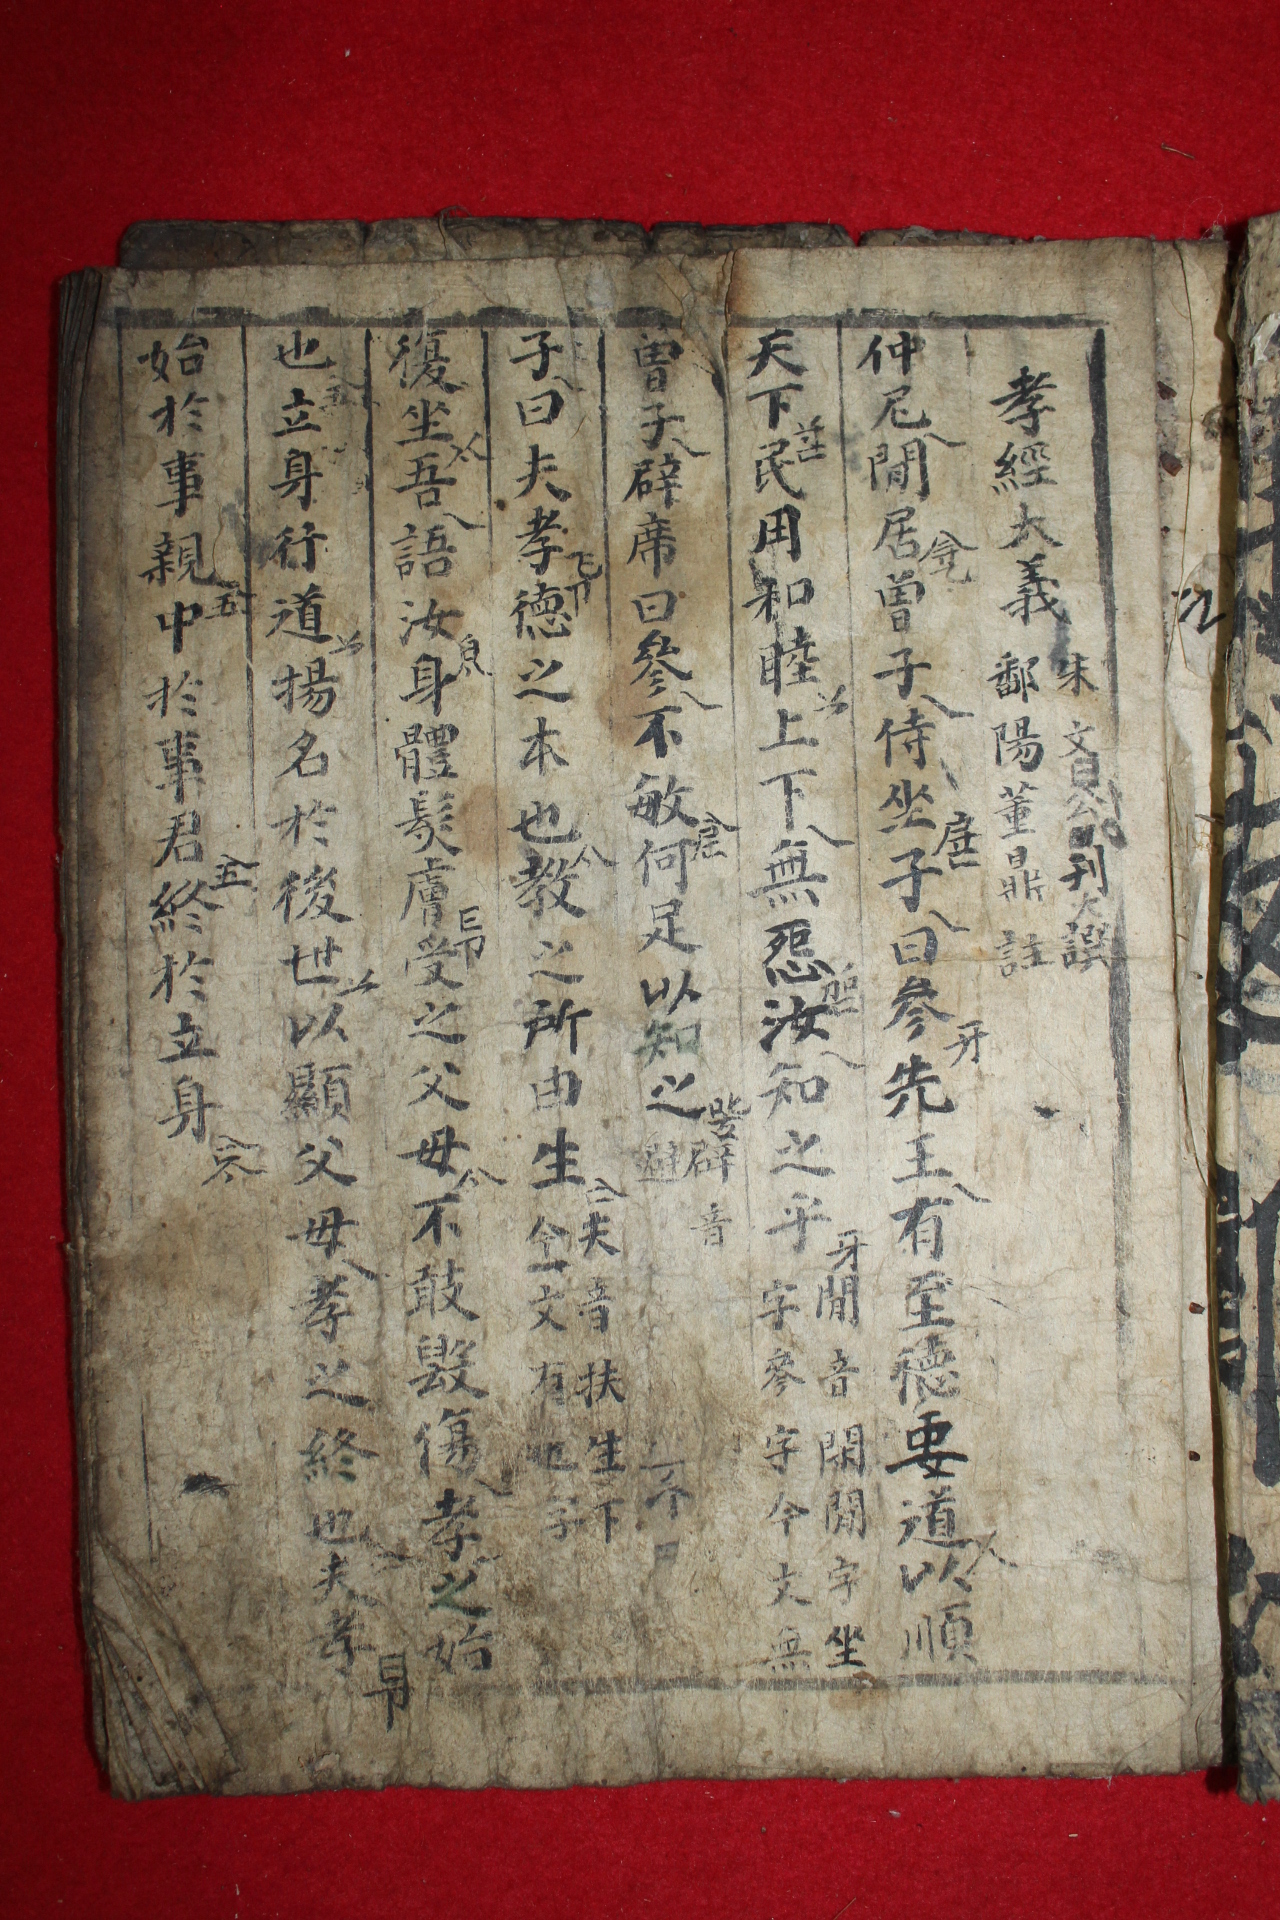 孝經大義
朱文公刊誤
鄱陽董鼎註
仲尼閒居曾子侍坐子曰參先王有至德要道以順
天下民用和睦上下無怨汝知之乎
閒音閑閒字坐
字參字今文無
曾子辟席曰參不敏何足以知之
辟音
避
子曰夫孝德之本也教之所由生
夫音扶生下
今文有也字
復坐吾語汝身體髮膚受之父母不敢毀傷孝之始
也立身行道揚名於後世以顯父母孝之終也夫孝
始於事親中於事君終於立身